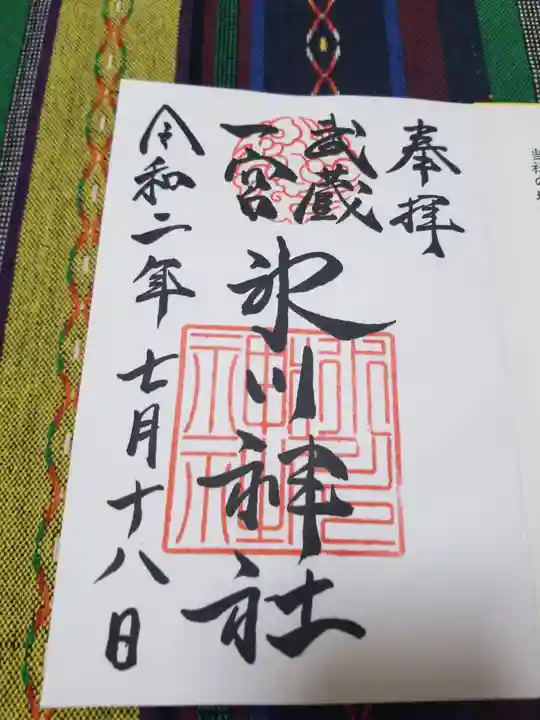 奉拝
武蔵
一宮
氷川神社
氷川
神社
令和二年七月十八日
当社の